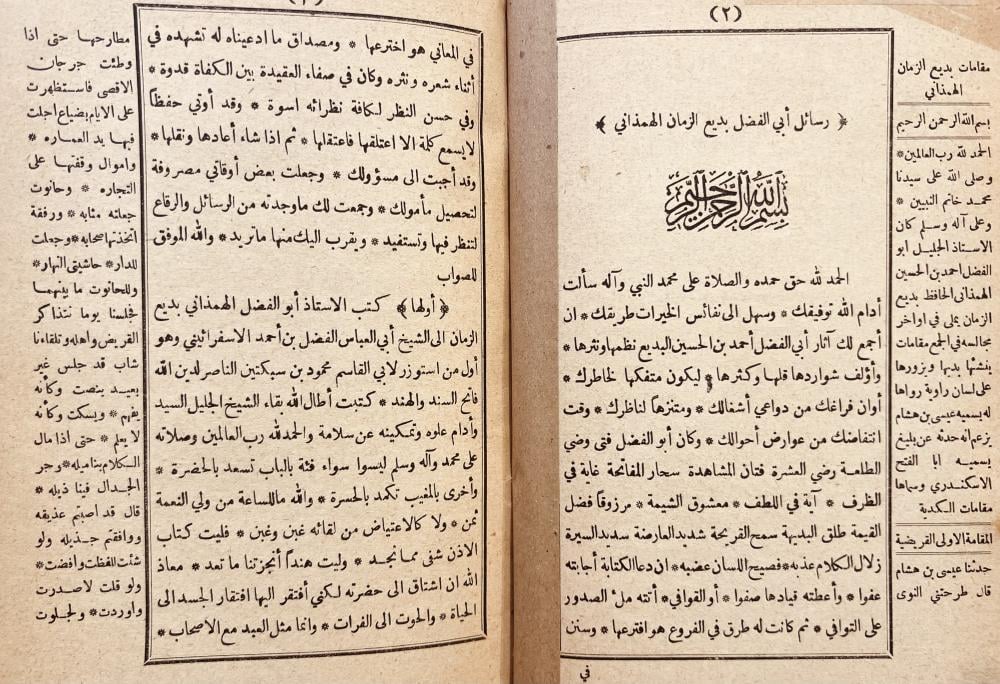 (٢)
﴿ رسائل أبي الفضل بديع الزمان الهمذاني ﴾
بسم الله الرحمن الرحيم
الحمد لله حق حمده والصلاة على محمد النبي وآله سألت
أدام الله توفيقك * وسهل الى نفائس الخيرات طريقك * ان
أجمع لك آثار أبي الفضل أحمد بن الحسين البديع نظمها ونثرها *
وأؤلف شواردها قلها وكثرها * ليكون متفكها لخاطرك *
أوان فراغك من دواعي أشغالك * ومتنزها لناظرك * وقت
انتفاضك من عوارض أحوالك * وكان أبو الفضل فتى وضي
الطلعة رضي العشرة فتان المشاهدة سحار المفاتحة غاية في
الظرف * آية في اللطف * معشوق الشيمة * مرزوقا فضل
القيمة طلق البديهة سمح القريحة شديد العارضة سديد السيرة
زلال الكلام عذبه * فصيح اللسان عضبه * ان دعا الكتابة أجابته
عفوا * وأعطته قيادها صفوا * أو القوافي * أتته ملء الصدور
على التوافي * ثم كانت له طرق في الفروع هو افترعها * وسنن
في
مقامات بديع الزمان
الهمذاني
بسم الله الرحمن الرحيم
الحمد لله رب العالمين *
وصلى الله على سيدنا
محمد خاتم النبيين *
وعلى آله وسلم كان
الاستاذ الجليل ابو
الفضل احمد بن الحسين
الهمذانى الحافظ بديع
الزمان يملى فى اواخر
مجالسه فى الجمع مقامات
ينشئها بديها ويزورها
على لسان راوية رواها
له يسميه عيسى بن هشام
يزعم انه حدثه عن بليغ
يسميه ابا الفتح
الاسكندرى وسماها
مقامات الكدية
المقامة الاولى القريضية
حدثنا عيسى بن هشام
قال طرحتني النوى
في المعاني هو اخترعها * ومصداق ما ادعيناه له تشهده في
أثناء شعره ونثره وكان في صفاء العقيدة بين الكفاة قدوة *
وفي حسن النظر لكافة نظرائه اسوة * وقد أوتي حفظاً
لا يسمع كلمة الا اعتلقها فاعتقلها * ثم اذا شاء أعادها ونقلها *
وقد أجبت الى مسؤولك * وجعلت بعض أوقاتي مصروفة
لتحصيل مأمولك * وجمعت لك ما وجدته من الرسائل والرقاع
لتنظر فيها وتستفيد * ويقرب اليك منها ما تريد * والله الموفق
للصواب
﴿ أولها ﴾ كتب الاستاذ أبو الفضل الهمذاني بديع
الزمان الى الشيخ أبي العباس الفضل بن أحمد الاسفرائيني وهو
أول من استوزر لابي القاسم محمود بن سبكتين الناصر لدين الله
فاتح السند والهند * كتبت أطال الله بقاء الشيخ الجليل السيد
وأدام علوه وتمكينه عن سلامة والحمد لله رب العالمين وصلاته
على محمد وآله وسلم ليسوا سواء فئة بالباب تسعد بالحضرة *
وأخرى بالمغيب تكمد بالحسرة * والله ما للساعة من ولي النعمة
ثمن * ولا كالاعتياض من لقائه غبن وغبن * فليت كتاب
الاذن شفى مما نجد * وليت هنداً أنجزتنا ما تعد * معاذ
الله ان اشتاق الى حضرته لكني أفتقر اليها افتقار الجسد الى
الحياة * والحوت الى الفرات * وانما مثل العبد مع الاصحاب *
مطارحها حتى اذا
وطئت جرجان
الاقصى فاستظهرت
على الايام بضياع اجلت
فيها يد العماره *
واموال وقفتها على
التجاره * وحانوت
جعلته مثابه * ورفقة
اتخذتها صحابه * وجعلت
للدار * حاشيتى النهار *
وللحانوت ما بينهما
فجلسنا يوما نتذاكر
القريض واهله وتلقاءنا
شاب قد جلس غير
بعيد ينصت وكأنه
يفهم * ويسكت وكأنه
لا يعلم * حتى اذا مال
الكلام بنا ميله * وجر
الجدال فينا ذيله *
قال قد اصبتم عذيقه
ووافيتم جذيله ولو
شئت للفظت وافضت *
ولو قلت لاصدرت
واوردت * ولجلوت